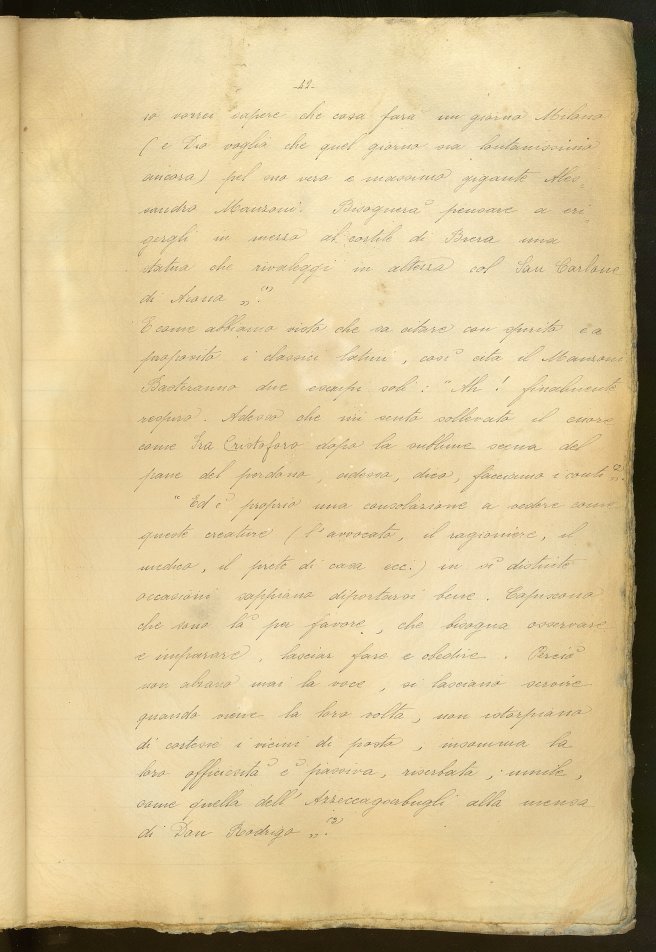 -42-
io vorrei sapere che cosa farà un giorno Milano
(e Dio voglia che quel giorno sia lontanissimo
ancora) pel suo vero e massimo gigante Ales-
sandro Manzoni. Bisognerà pensare a eri-
gergli in mezzo al cortile di Brera una
statua che rivaleggi in altezza col San Carlone
di Arona „. (1)
E come abbiamo visto che sa citare con spirito e a
proposito i classici latini, così cita il Manzoni
Basteranno due esempi soli: "Ah! finalmente
respiro. Adesso che mi sento sollevato il cuore
come Fra Cristoforo dopo la sublime scena del
pane del perdono, adesso, dico, facciamo i conti „. (2)
"Ed è proprio una consolazione a vedere come
queste creature (l'avvocato, il ragioniere, il
medico, il prete di casa ecc.) in sì distinte
occasioni sappiano diportarsi bene. Capiscono
che sono là per favore, che bisogna osservare
e imparare, lasciar fare e obedire. Perciò
non alzano mai la voce, si lasciano servire
quando viene la loro volta, non istorpiano
di cortesie i vicini di posto, insomma la
loro officiosità è passiva, riserbata, umile,
come quella dell'Azzeccagarbugli alla mensa
di Don Rodrigo „. (3)